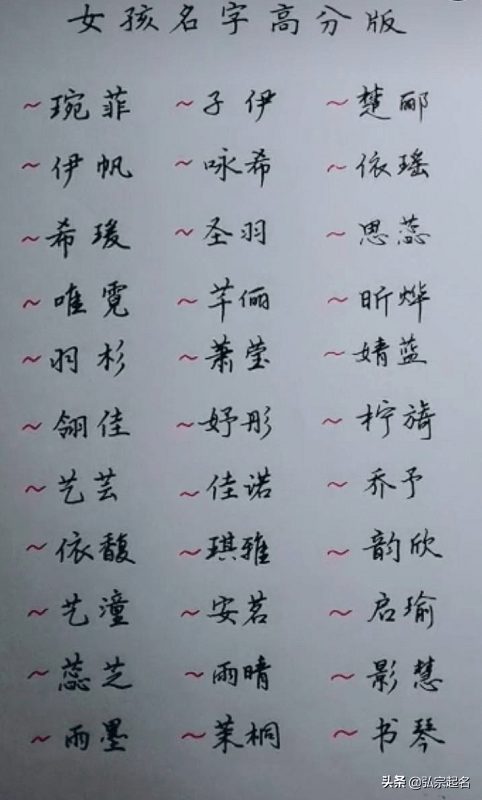 女孩名字高分版
~琬菲 ~子伊 ~楚郦
~伊帆 ~咏希 ~依瑶
~希瑗 ~圣羽 ~思蕊
~唯霓 ~芊俪 ~昕烨
~羽杉 ~萧莹 ~婧蓝
~翎佳 ~妤彤 ~柠旖
~艺芸 ~佳诺 ~乔予
~依馥 ~琪雅 ~韵欣
~艺潼 ~安茗 ~启瑜
~蕊芝 ~雨晴 ~影慧
~雨墨 ~茉桐 ~书琴
头条 @弘宗起名